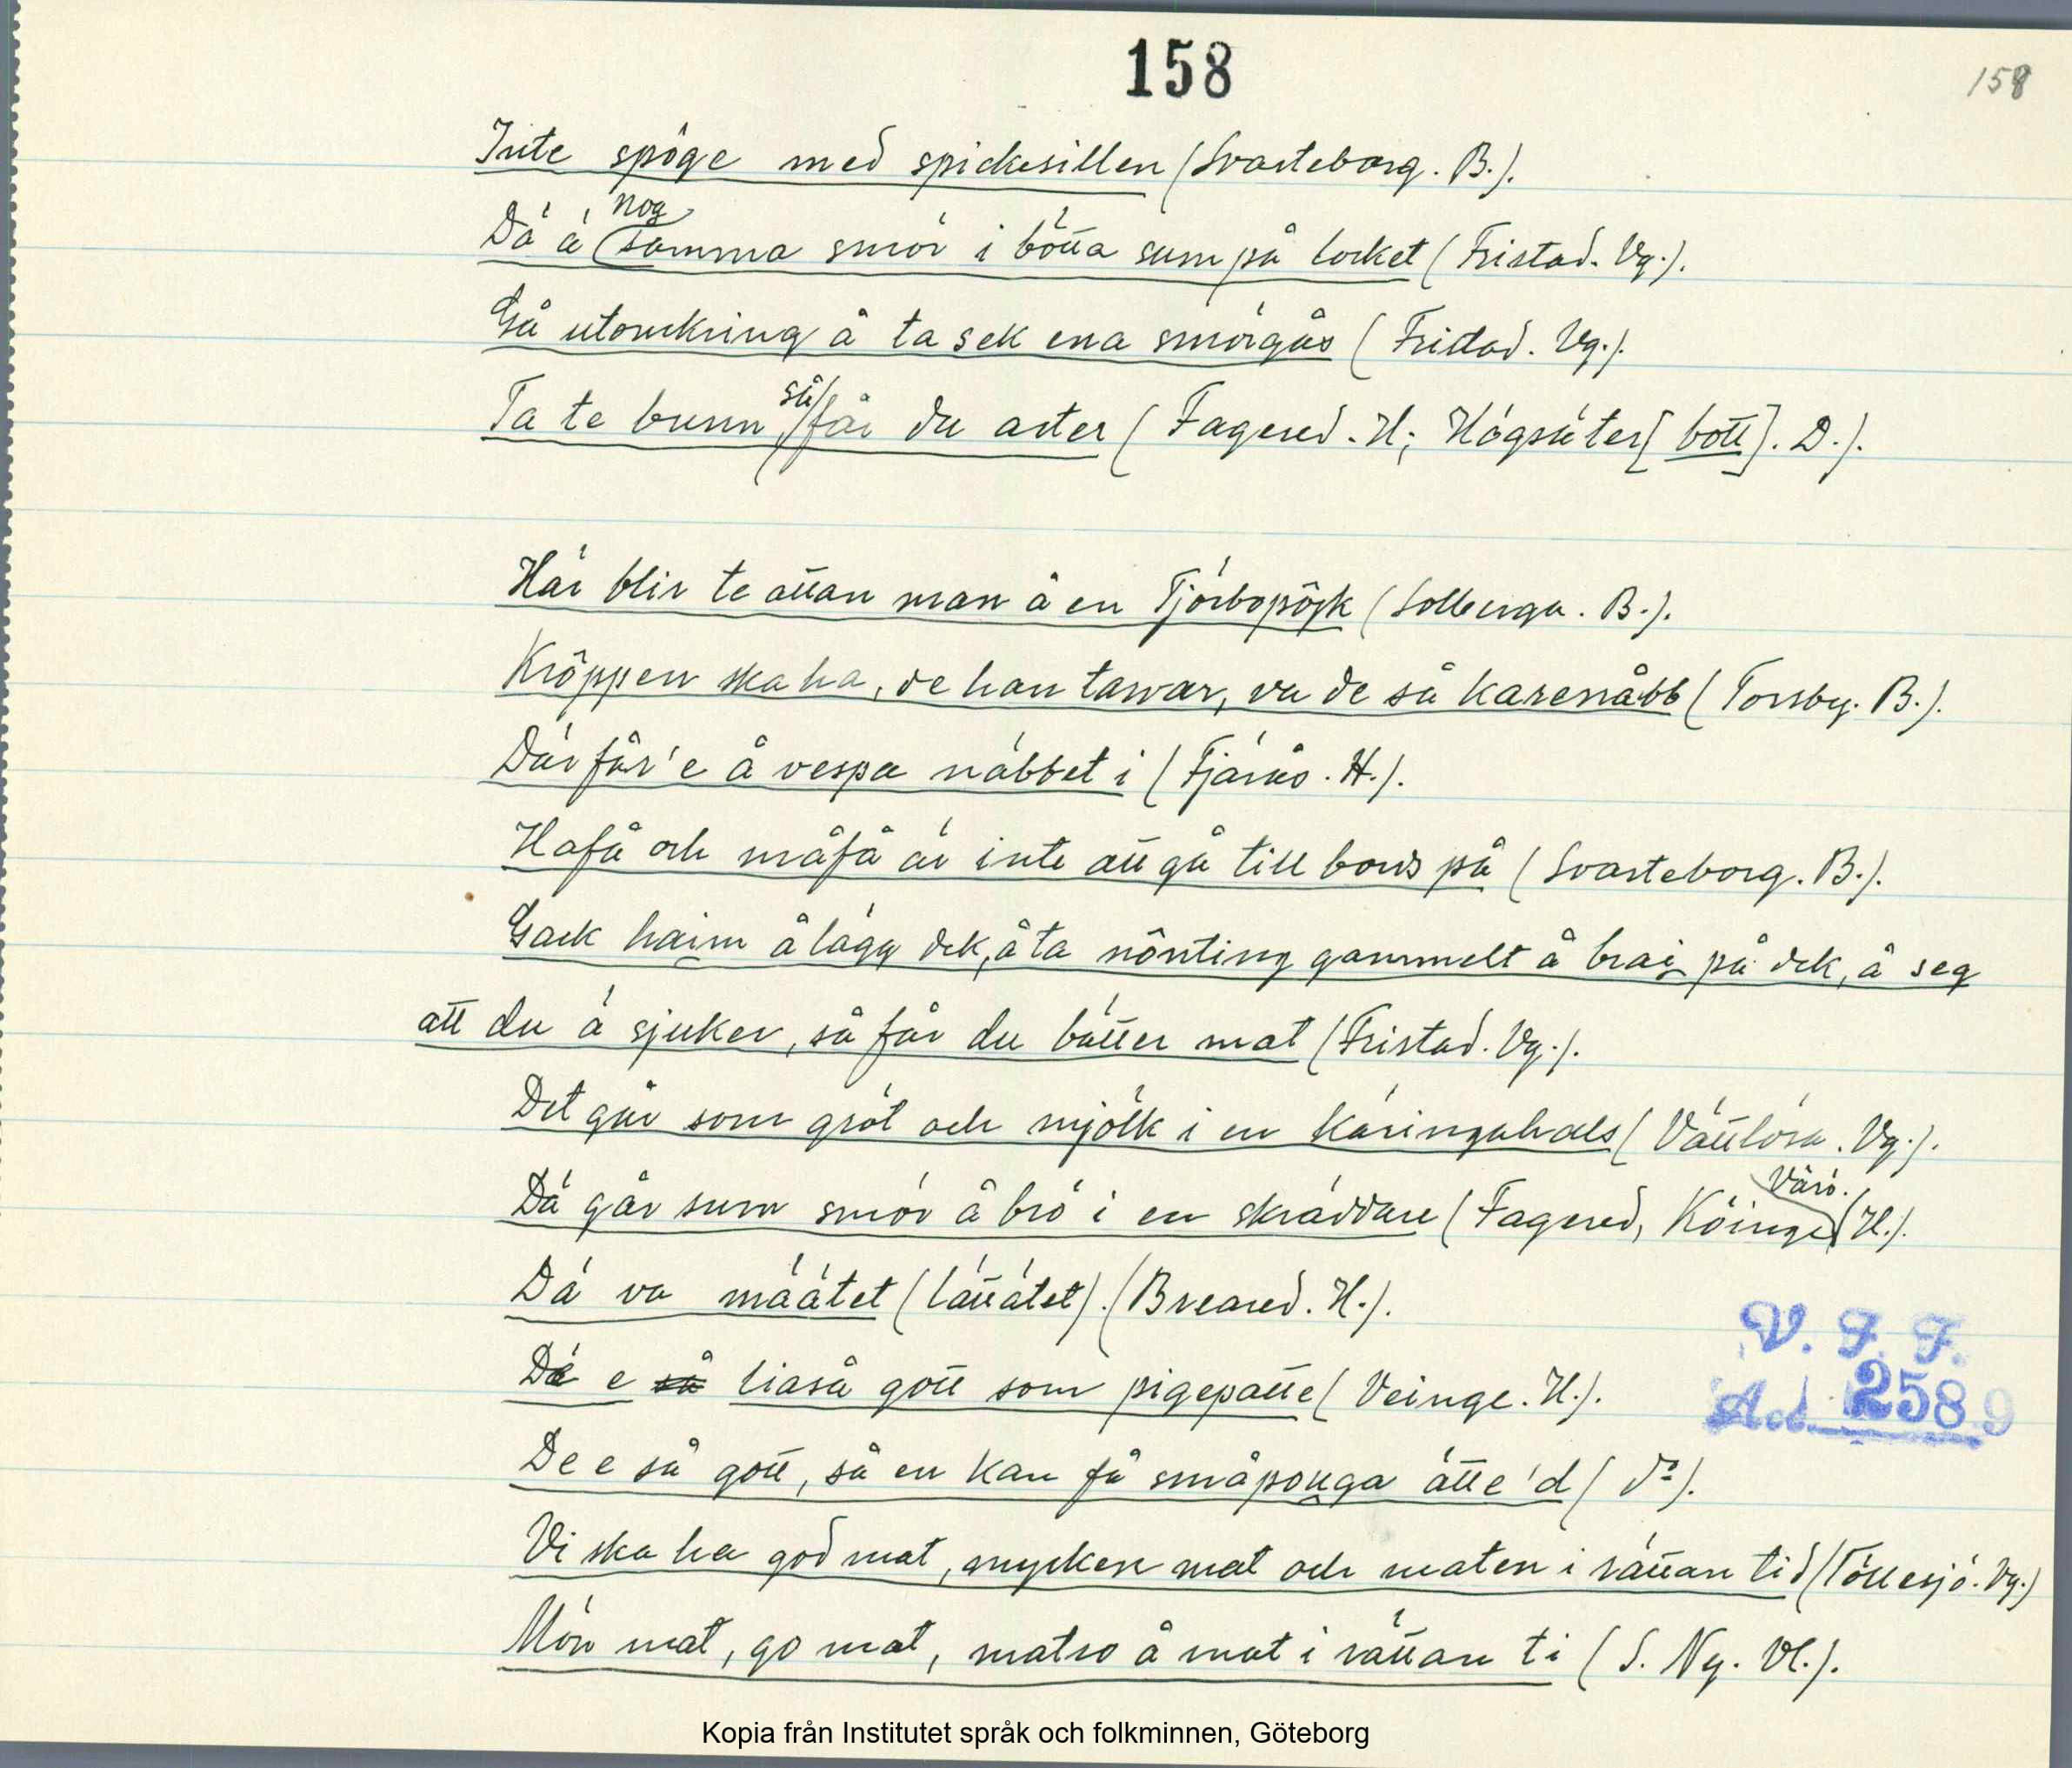 158
158
Inte spöge med spickesillen (Svarteborg. B.).
nog
Dä ä samma smör i bötta sum på locket (Fristad. Vg.).
Gå utomkring å ta sek ena smörgås (Fristad. Vg.).
så
Ta te bunn, får du arter (Fagered. H; Högsäter [bott]. D.).
Här blir te ättan man å en Tjörbopöjk (Solberga. B.).
Kröppen ska ha, de han tarvar, va de så karenåbb (Torsby. B.).
Där får'e å vespa näbbet i (Fjärås. H.).
Hafå och måfå är inte att gå till bords på (Svarteborg. B.).
Gack haim å lägg dek, å ta nönting gammelt å brai på dek, å seg
att du ä sjuker, så får du bätter mat (Fristad. Vg.).
Det går som gröt och mjölk i en käringahals (Vättlösa. Vg.).
Värö.
Dä går sum smör å brö i en skräddare (Fagered, Köinge H.).
Dä va määtet (lättätet). (Breared. H.).
Dä e så liaså gott som pigepatte (Veinge. H.).
De e så gott, så en kan få småpouga ätte'd (do).
Vi ska ha god mat, mycken mat och maten i rättan tid (Töllesjö. Vg.)
Mön mat, go mat, matro å mat i rättan ti (S. Ny. Vl.).
V. F. F.
Acc. 2589
Kopia från Institutet språk och folkminnen, Göteborg